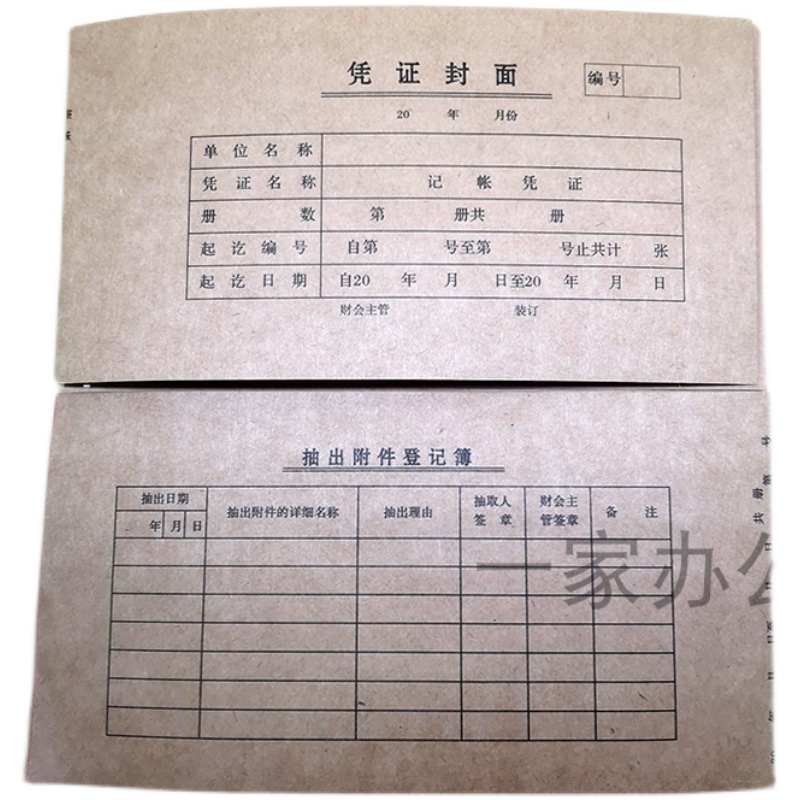 凭证封面
编号
20 年 月份
单位名称
凭证名称 记帐凭证
册数 第 册共 册
起讫编号 自第 号至第 号止共计 张
起讫日期 自20 年 月 日至20 年 月 日
财会主管 装订
抽出附件登记簿
抽出日期 抽出附件的详细名称 抽出理由 抽取人签章 财会主管签章 备注
年 月 日
一家办公